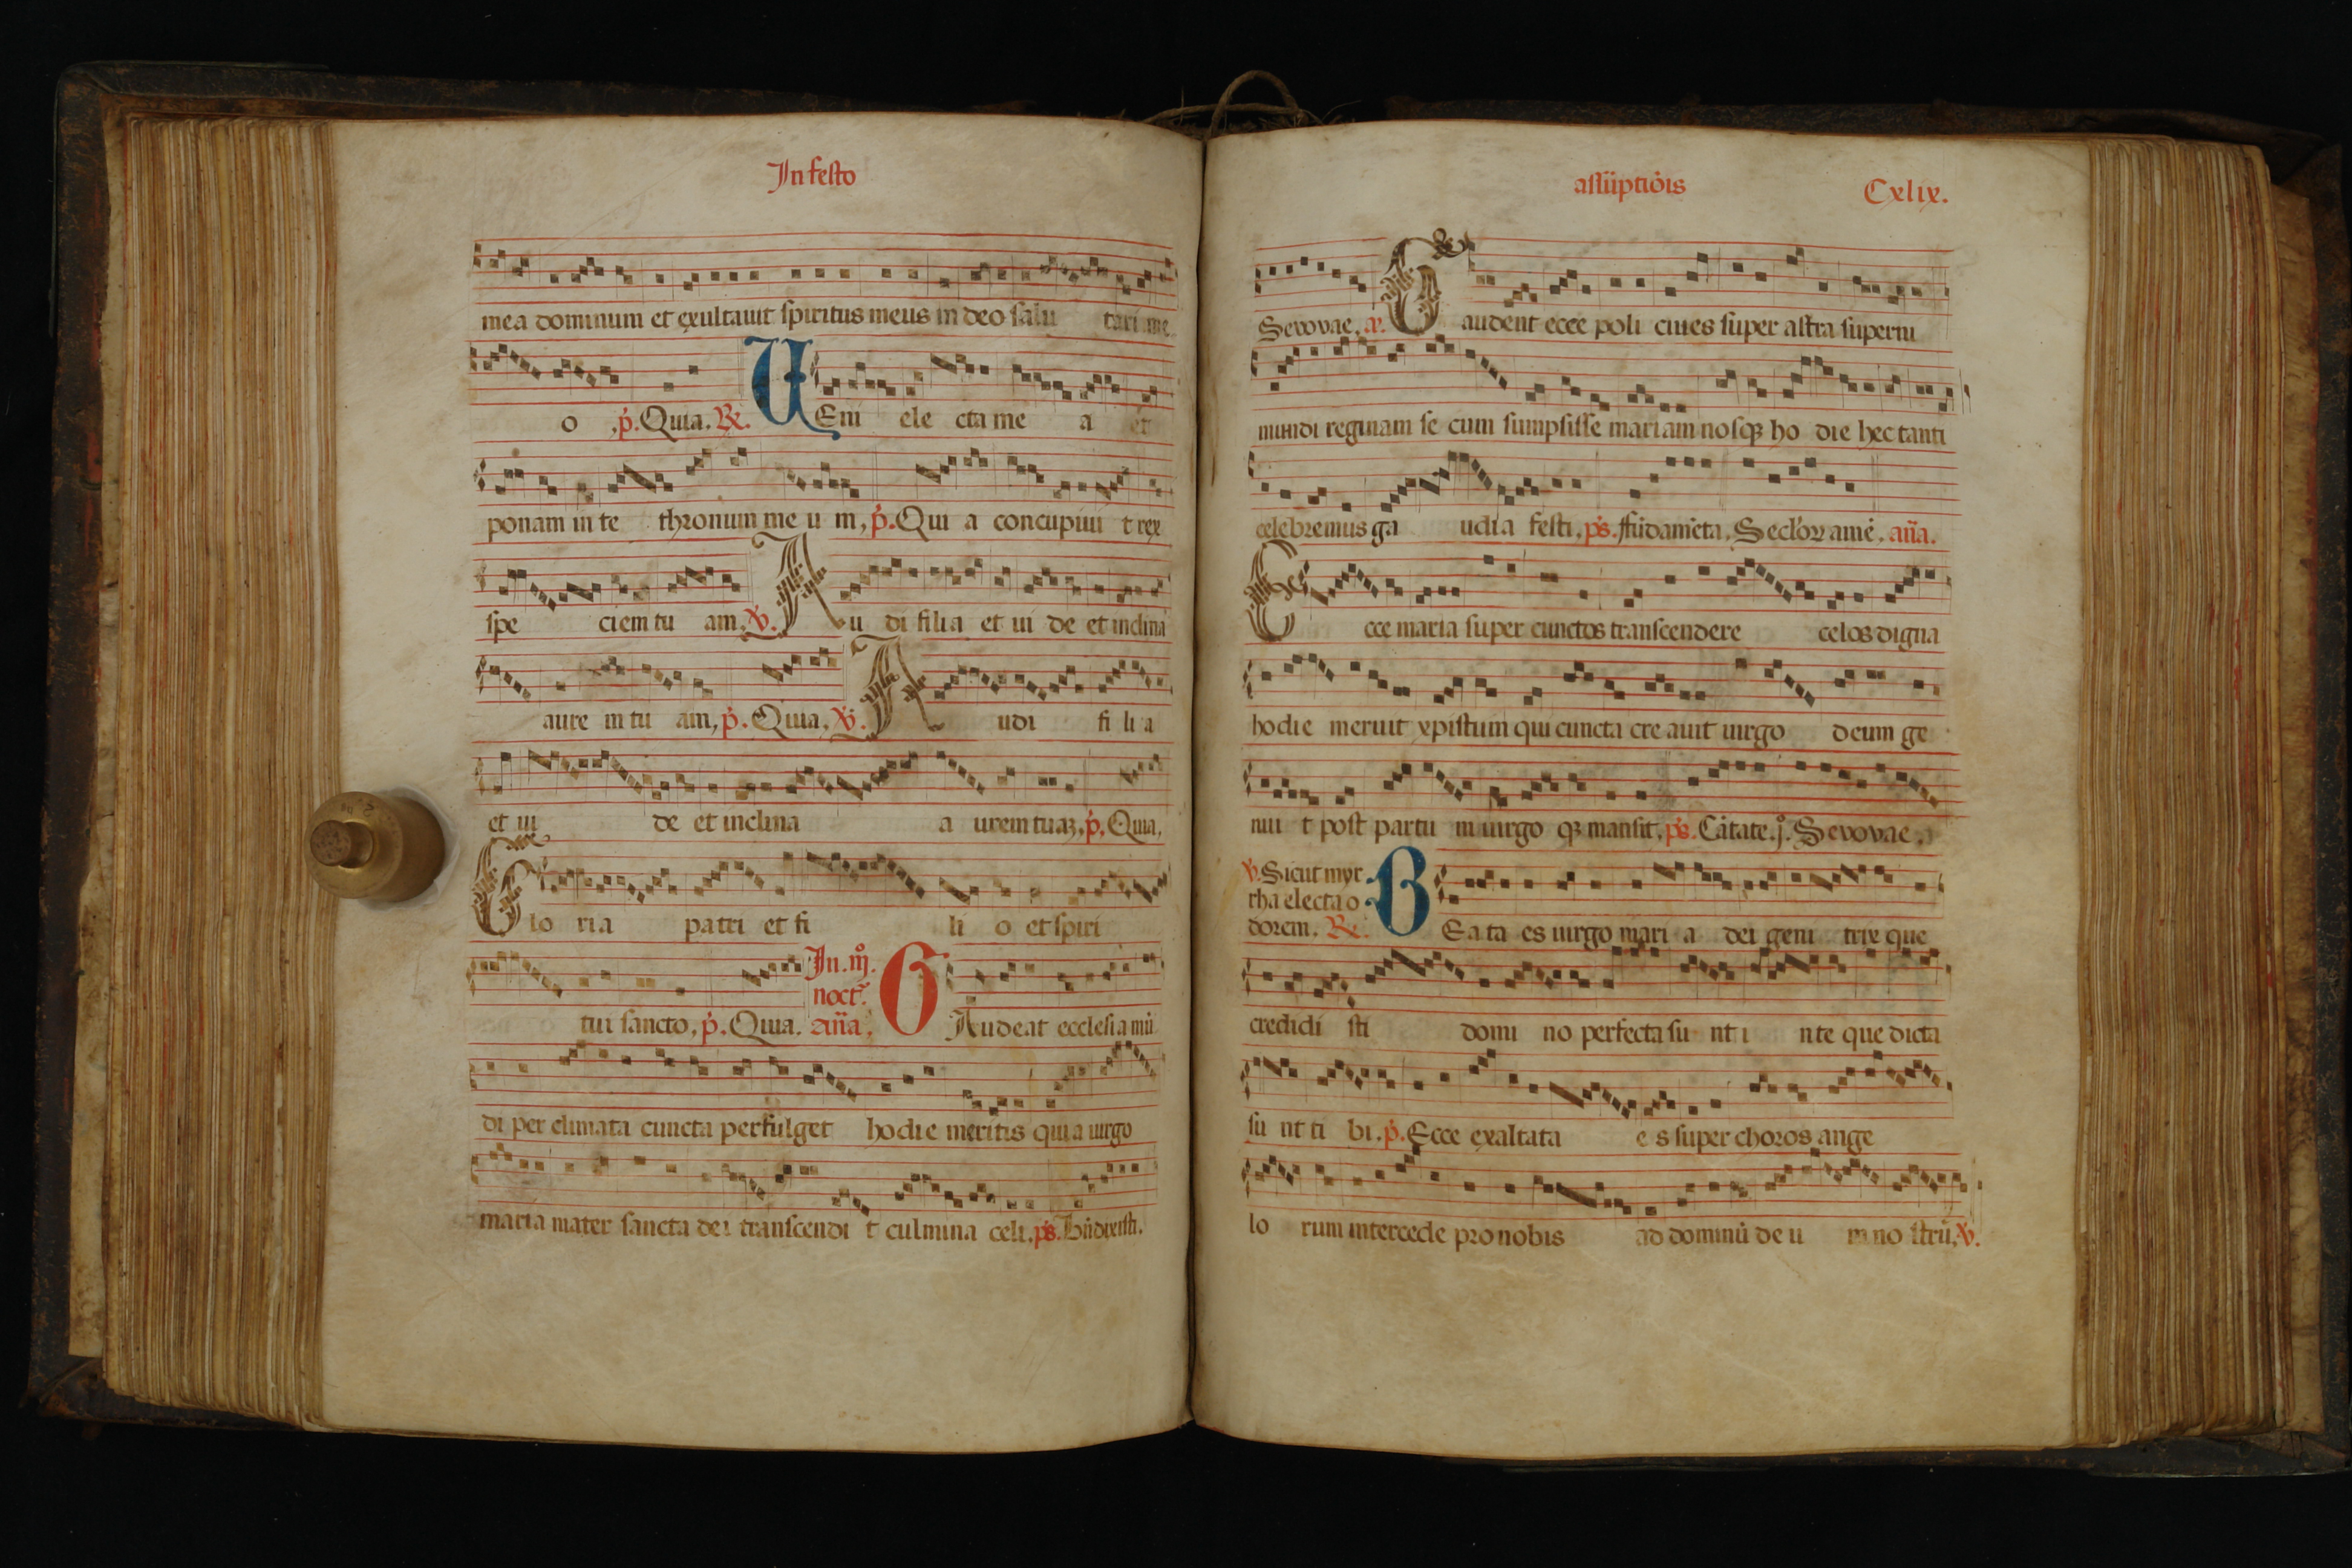 In festo
mea dominum et exultauit spiritus meus in deo salu tari me
o ,p̄. Quia. ℟. UEni ele cta me a et
ponam in te thronum me u m, p̄. Qui a concupiui t rex
spe ciem tu am, ℣. Au di filia et ui de et inclina
aure in tu am, p̄. Quia. ℣. Audi fi li a
et ui de et inclina a urem tuaꝫ, p̄. Quia.
Glo ria patri et fi li o et spiri
In. iij̊.
noct̄.
tui sancto, p̄. Quia. an̄a. GAudeat ecclesia mū
di per climata cuncta perfulget hodie meritis quia uirgo
maria mater sancta dei transcendi t culmina celi. ps. Bn̄dixisti.
assūptiōis Cxlix.
Seuouae, a. Gaudent ecce poli ciues super astra superni
mundi reginam se cum sumpsisse mariam nosqꝫ ho die hec tanti
celebremus ga udia festi. ps. ffūdam̄eta. Secl'oꝝ amē. an̄a.
Ecce maria super cunctos transcendere celos digna
hodie meruit xpistum qui cuncta cre auit uirgo deum ge
nui t post partu m uirgo qꝫ mansit. ps. Cātate. j̊. Seuouae,
℣. Sicut myr
rha electa o
dorem. ℟. BEa ta es uirgo mari a dei geni trix que
credidi sti domi no perfecta su nt i nte que dicta
su nt ti bi. p̄. Ecce exaltata e s super choros ange
lo rum intercede pro nobis ad dominū de u m no strū, ℣.